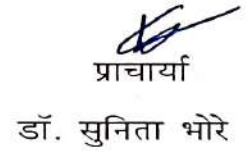 प्राचार्या
डॉ. सुनिता भोरे